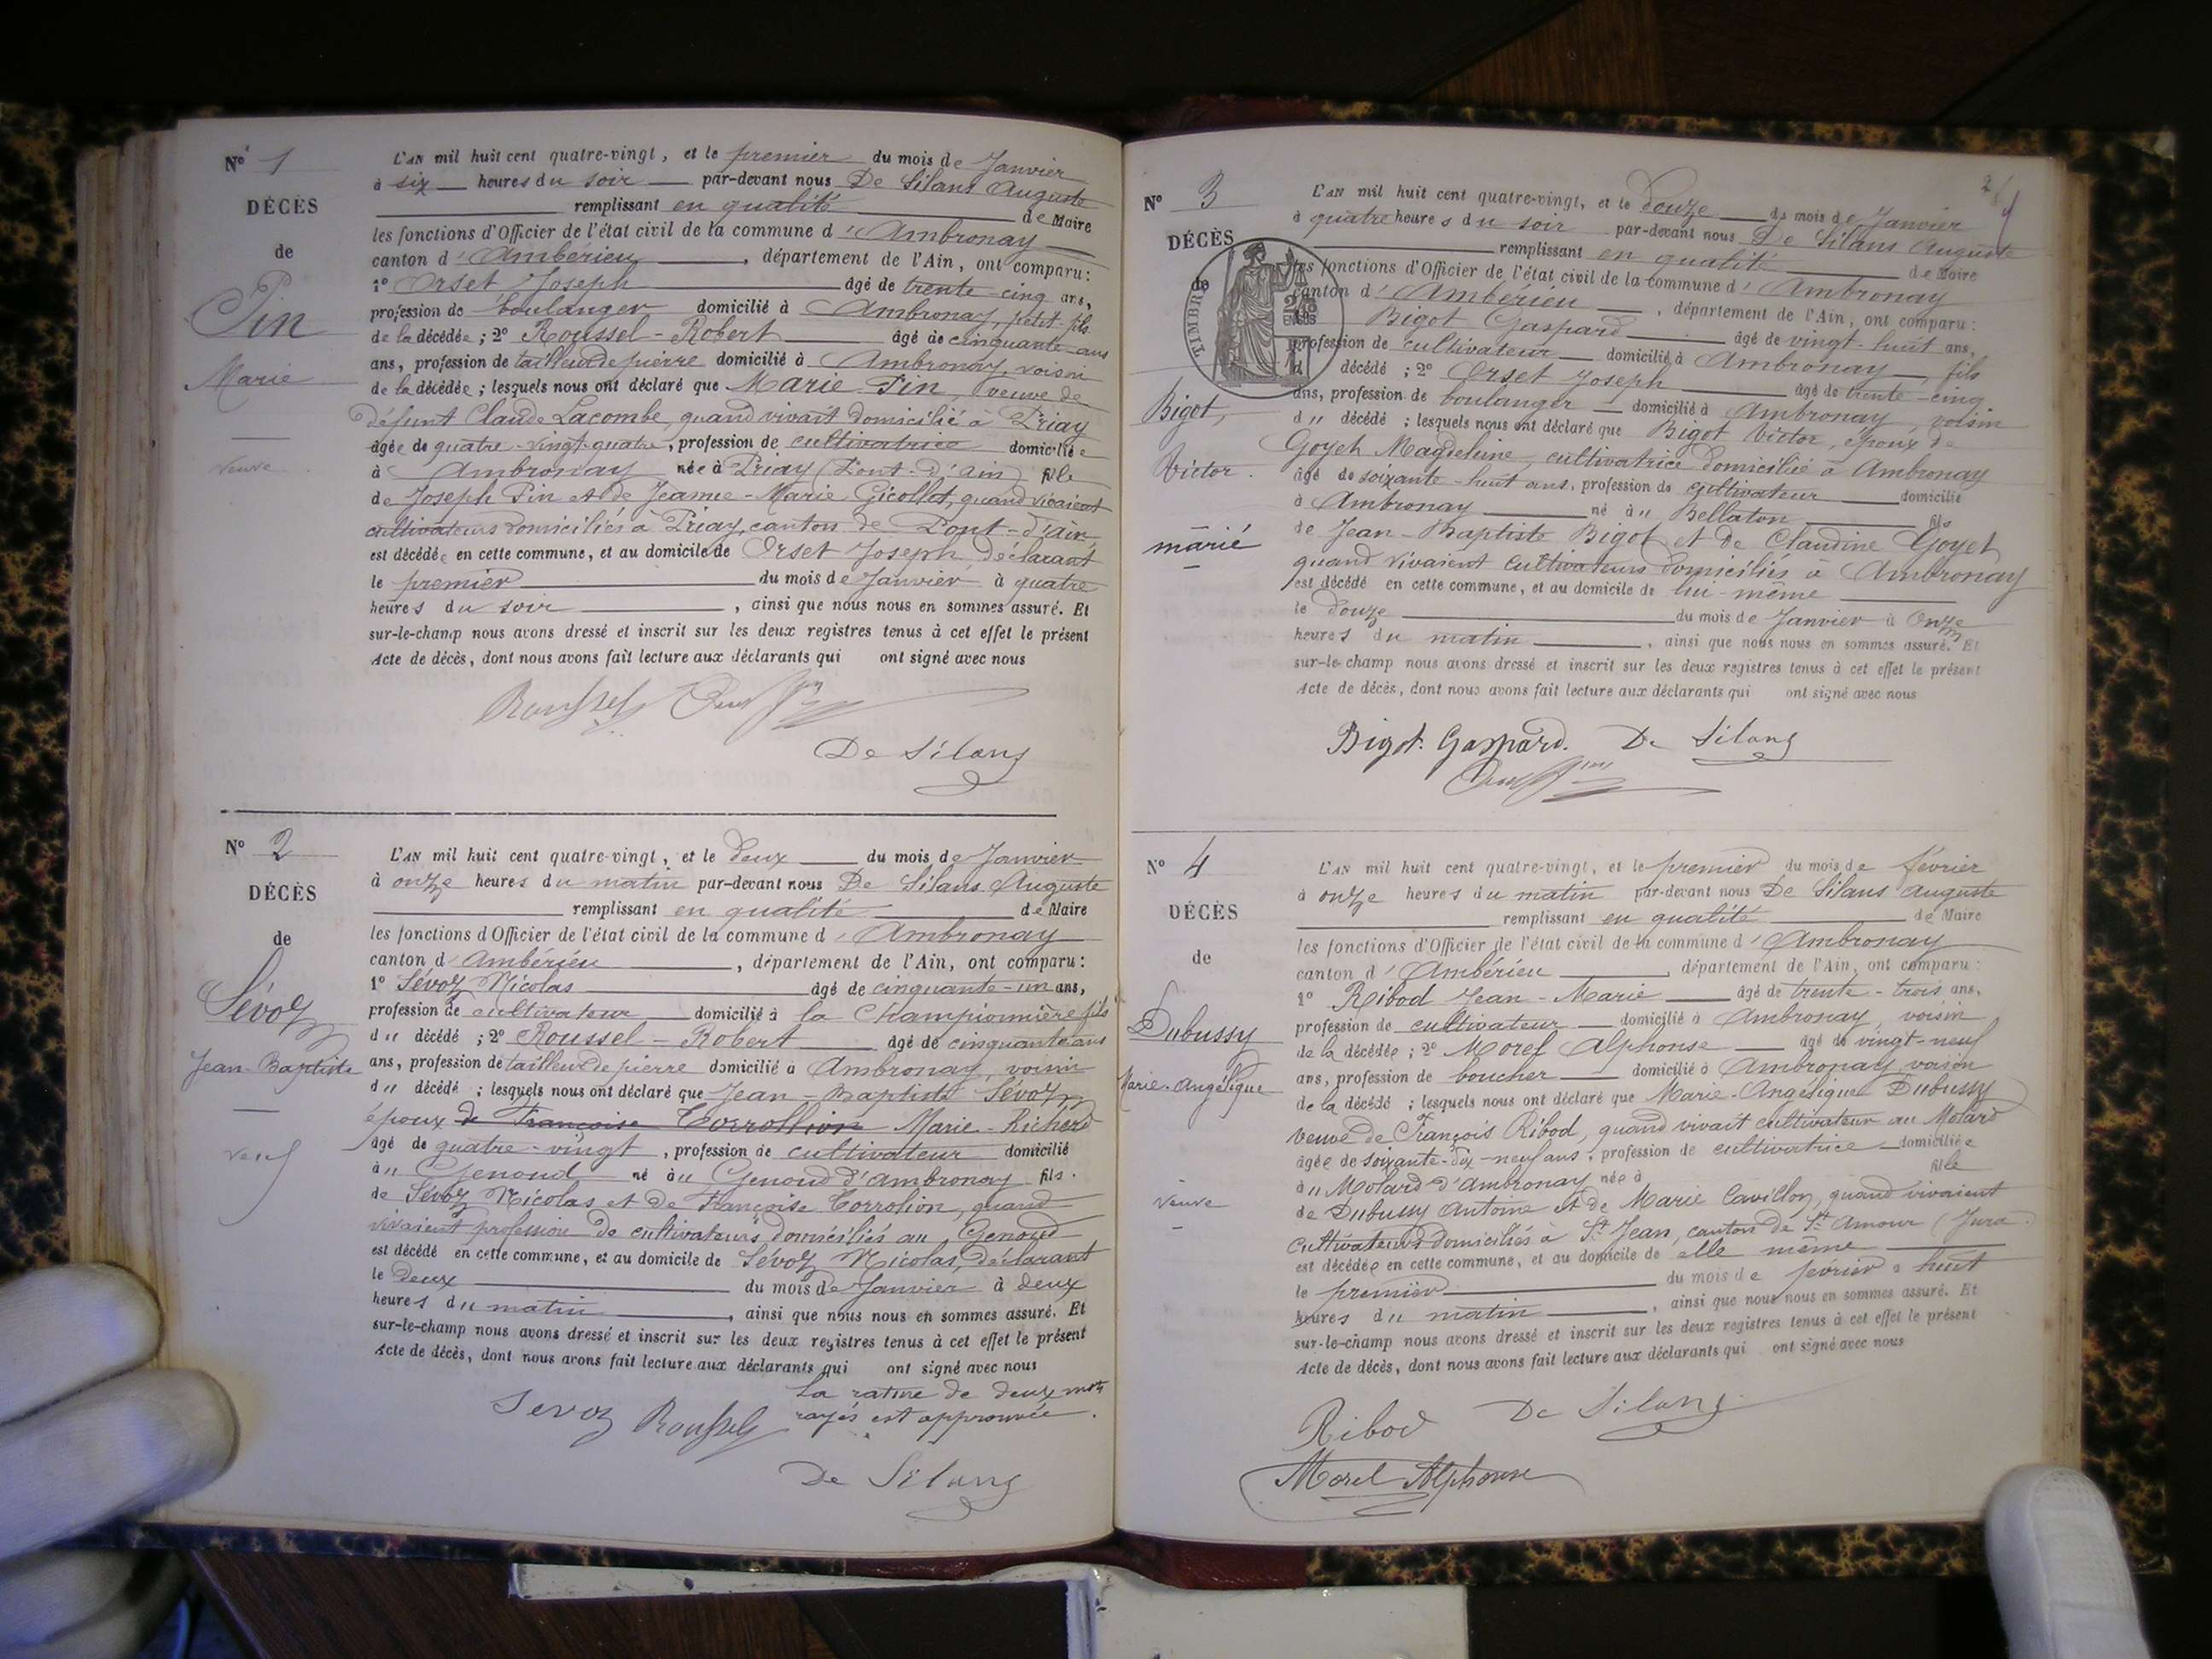 Nº 1
DÉCÈS
de
Pin
Marie
veuve
L'AN mil huit cent quatre-vingt, et le premier du mois de Janvier
à six heures du soir par-devant nous De Silans Auguste
remplissant en qualité de Maire
les fonctions d'Officier de l'état civil de la commune d'Ambronay
canton d'Ambérieu, département de l'Ain, ont comparu:
1º Orset Joseph âgé de trente-cinq ans,
profession de boulanger domicilié à Ambronay, petit-fils
de la décédée; 2º Roussel-Robert âgé de cinquante ans
ans, profession de tailleur de pierre domicilié à Ambronay, voisin
de la décédée; lesquels nous ont déclaré que Marie Pin, veuve de
défunt Claude Lacombe, quand vivait domicilié à Priay
âgée de quatre-vingt-quatre, profession de cultivatrice domiciliée
à Ambronay née à Priay (Pont-d'Ain) fille
de Joseph Pin et de Jeanne-Marie Gicollot, quand vivaient
cultivateurs domiciliés à Priay, canton de Pont-d'Ain
est décédée en cette commune, et au domicile de Orset Joseph, déclarant
le premier du mois de Janvier à quatre
heures du soir, ainsi que nous nous en sommes assuré. Et
sur-le-champ nous avons dressé et inscrit sur les deux registres tenus à cet effet le présent
Acte de décès, dont nous avons fait lecture aux déclarants qui ont signé avec nous
Roussel
De Silans
Nº 2
DÉCÈS
de
Sévoz
Jean-Baptiste
veuf
L'AN mil huit cent quatre-vingt, et le deux du mois de Janvier
à onze heures du matin par-devant nous De Silans Auguste
remplissant en qualité de Maire
les fonctions d'Officier de l'état civil de la commune d'Ambronay
canton d'Ambérieu, département de l'Ain, ont comparu:
1º Sévoz Nicolas âgé de cinquante-un ans,
profession de cultivateur domicilié à la Championnière fils
du décédé; 2º Roussel-Robert âgé de cinquante ans
ans, profession de tailleur de pierre domicilié à Ambronay, voisin
du décédé; lesquels nous ont déclaré que Jean-Baptiste Sévoz
époux de Françoise Corrollion Marie-Richerd
âgé de quatre-vingt, profession de cultivateur domicilié
au Genoud né au Genoud d'Ambronay fils
de Sévoz Nicolas et de Françoise Corrolion, quand
vivaient profession de cultivateurs domiciliés au Genoud
est décédé en cette commune, et au domicile de Sévoz Nicolas, déclarant
le deux du mois de Janvier à deux
heures du matin, ainsi que nous nous en sommes assuré. Et
sur-le-champ nous avons dressé et inscrit sur les deux registres tenus à cet effet le présent
Acte de décès, dont nous avons fait lecture aux déclarants qui ont signé avec nous
La rature de deux mots
rayés est approuvée.
Sevoz Roussel
De Silans
Nº 3
DÉCÈS
de
TIMBRE
Bigot,
Victor.
marié
L'AN mil huit cent quatre-vingt, et le douze du mois de Janvier
à quatre heures du soir par-devant nous De Silans Auguste
remplissant en qualité de Maire
les fonctions d'Officier de l'état civil de la commune d'Ambronay
canton d'Ambérieu, département de l'Ain, ont comparu:
Bigot Gaspard âgé de vingt-huit ans,
profession de cultivateur domicilié à Ambronay, fils
décédé; 2º Orset Joseph âgé de trente-cinq
ans, profession de boulanger domicilié à Ambronay, voisin
du décédé; lesquels nous ont déclaré que Bigot Victor, époux de
Goyet Magdeleine, cultivatrice domicilié à Ambronay
âgé de soixante-huit ans, profession de cultivateur domicilié
à Ambronay né au Bellaton fils
de Jean-Baptiste Bigot et de Claudine Goyet
quand vivaient cultivateurs domiciliés à Ambronay
est décédé en cette commune, et au domicile de lui-même
le douze du mois de Janvier à onze
heures du matin, ainsi que nous nous en sommes assuré. Et
sur-le-champ nous avons dressé et inscrit sur les deux registres tenus à cet effet le présent
Acte de décès, dont nous avons fait lecture aux déclarants qui ont signé avec nous
Bigot Gaspard. De Silans
Nº 4
DÉCÈS
de
Dubussy
Marie-Angélique
veuve
L'AN mil huit cent quatre-vingt, et le premier du mois de février
à onze heures du matin par-devant nous De Silans Auguste
remplissant en qualité de Maire
les fonctions d'Officier de l'état civil de la commune d'Ambronay
canton d'Ambérieu, département de l'Ain, ont comparu:
1º Ribod Jean-Marie âgé de trente-trois ans,
profession de cultivateur domicilié à Ambronay, voisin
de la décédée; 2º Morel Alphonse âgé de vingt-neuf
ans, profession de boucher domicilié à Ambronay, voisin
de la décédé; lesquels nous ont déclaré que Marie-Angélique Dubussy
veuve de François Ribod, quand vivait cultivateur au Molard
âgée de soixante-dix-neuf ans, profession de cultivatrice domiciliée
au Molard d'Ambronay née à fille
de Dubussy Antoine et de Marie Cavillon, quand vivaient
cultivateurs domiciliés à St Jean, canton de St Amour (Jura
est décédée en cette commune, et au domicile de elle même
le premier du mois de février à huit
heures du matin, ainsi que nous nous en sommes assuré. Et
sur-le-champ nous avons dressé et inscrit sur les deux registres tenus à cet effet le présent
Acte de décès, dont nous avons fait lecture aux déclarants qui ont signé avec nous
Ribod De Silans
Morel Alphonse